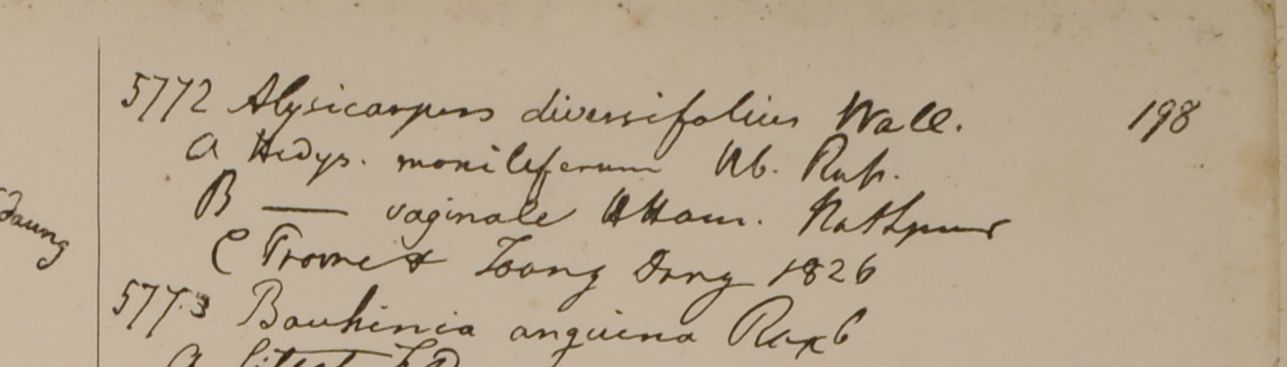 5772 Alysicarpus diversifolius Wall. 198
A Hedys. moniliferum Hb. Rub.
B —— vaginale HHam. Nathpur
daung
C Prome & Toong Dong 1826
5773 Bauhinia anguina Roxb